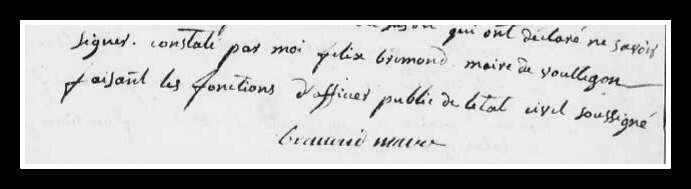 qui ont declaré ne savoir
signer. constaté par moi felix bremond maire de voullegon
faisant les fonctions d'officier public de letat civil soussigné
bremond maire